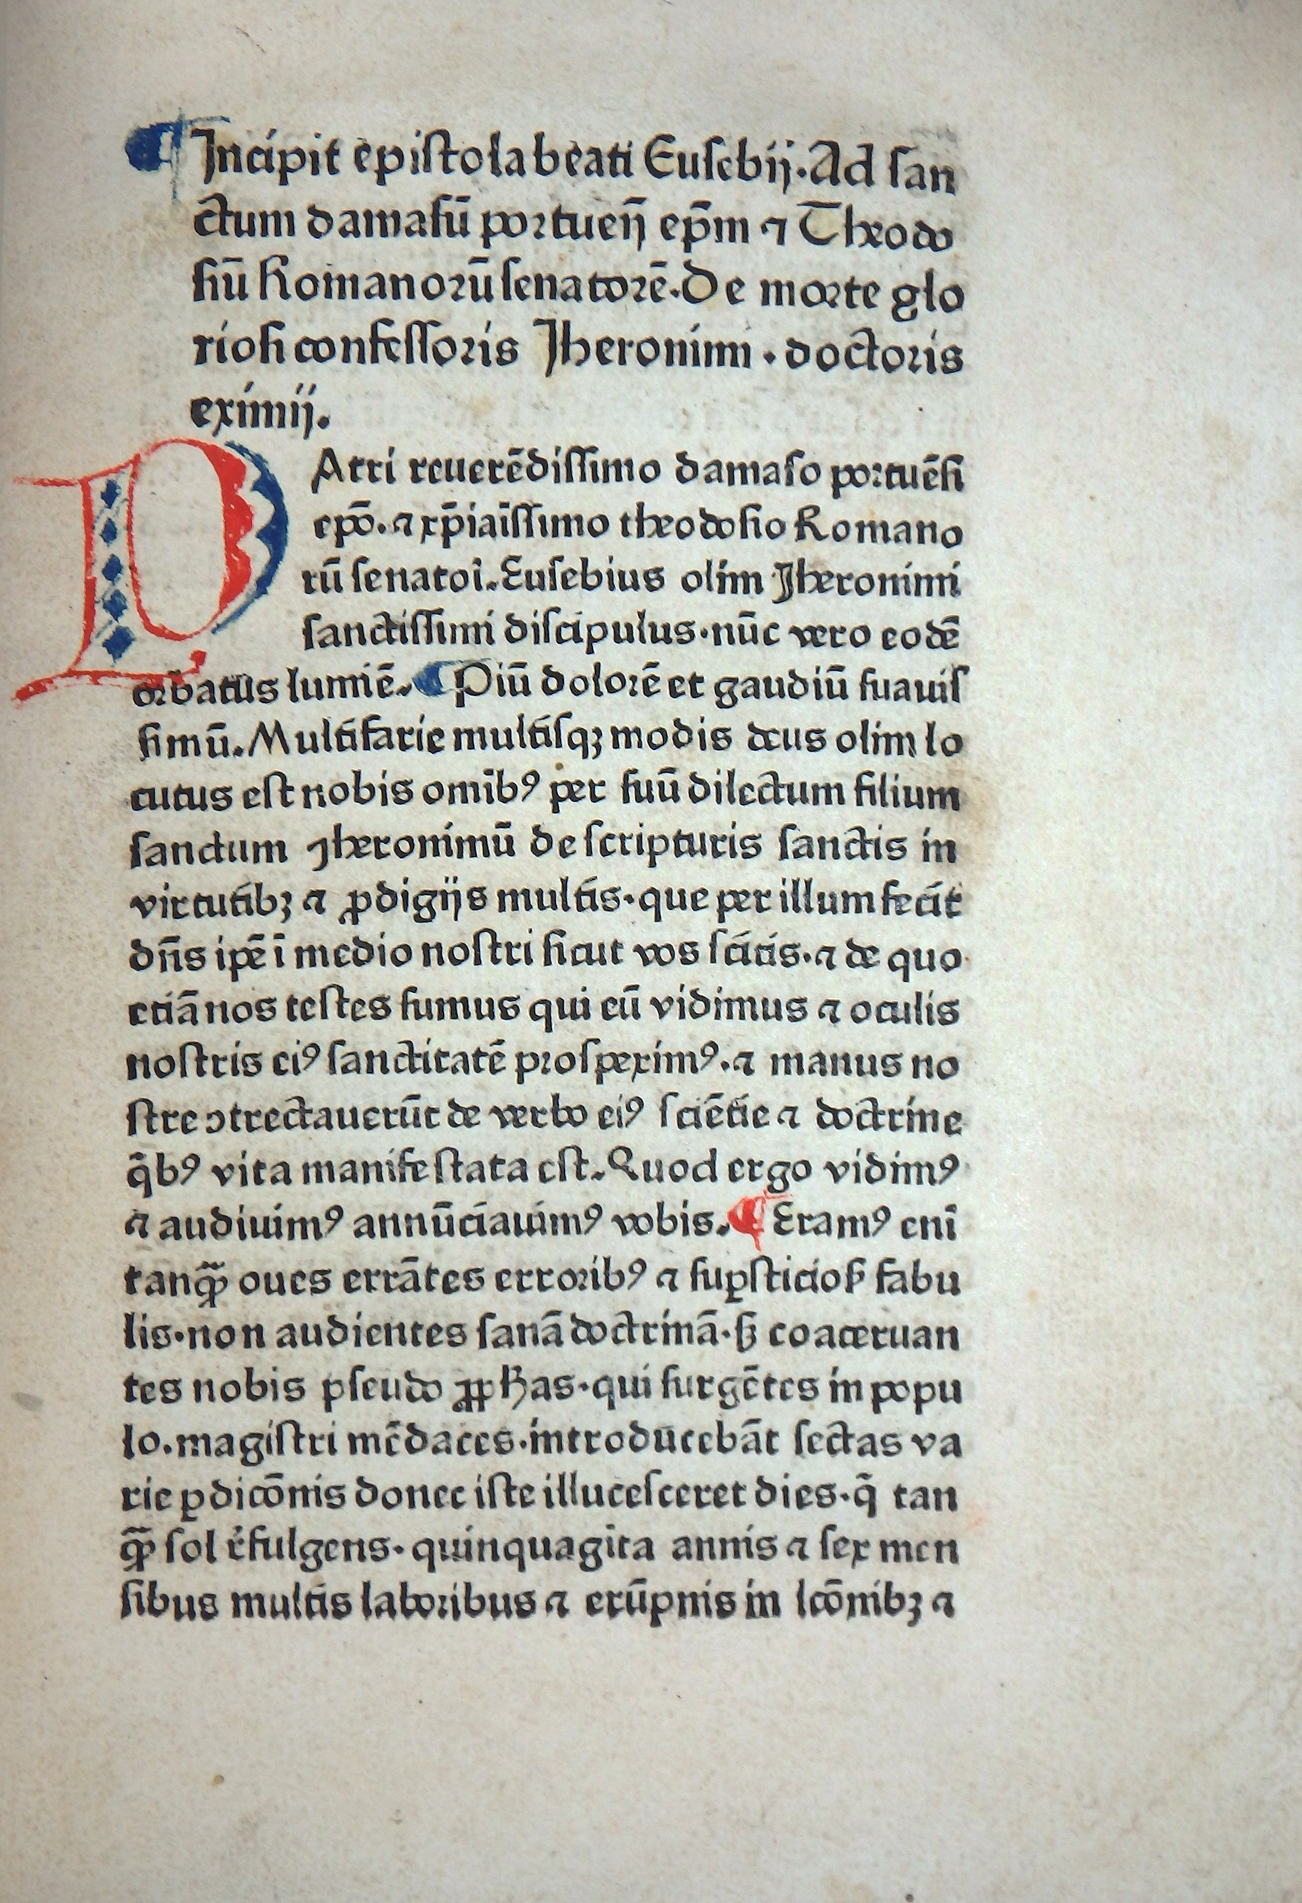 ¶ Incipit epistola beati Eusebij. Ad san
ctum damasū portueñ ep̄m ⁊ Theodo
siū Romanorū senatorē. De morte glo
riosi confessoris Jheronimi · doctoris
eximij.
PAtri reuerēdissimo damaso portuēsi
epō. ⁊ xp̄iaīssimo theodosio Romano
rū senatoī. Eusebius olim Jheronimi
sanctissimi discipulus · nūc vero eodē
orbatus lumīe. ¶ Piū dolorē et gaudiū suauis
simū. Multifarie multisqꝫ modis deus olim lo
cutus est nobis omībꝰ per suū dilectum filium
sanctum Jheronimū de scripturis sanctis in
virtutibꝫ ⁊ ꝓdigijs multis · que per illum fecit
dn̄s ip̄e ī medio nostri sicut vos scitis · ⁊ de quo
etiā nos testes sumus qui eū vidimus ⁊ oculis
nostris eiꝰ sanctitatē prospeximꝰ. ⁊ manus no
stre ꝯtrectauerūt de verbo eiꝰ sciētie ⁊ doctrine
q̄bꝰ vita manifestata est. Quod ergo vidimꝰ
⁊ audiuimꝰ annūciauimꝰ vobis. ¶ Eramꝰ enī
tanꝙ̄ oues errātes erroribꝰ ⁊ suꝑsticiosꝭ fabu
lis · non audientes sanā doctrinā · sꝫ coaceruan
tes nobis pseudo ꝓpħas · qui surgētes in popu
lo. magistri mēdaces · introducebāt sectas va
rie ꝑdicōnis donec iste illucesceret dies · q̄ tan
ꝙ̄ sol r̄fulgens · quinquagīta annis ⁊ sex men
sibus multis laboribus ⁊ erūpnis in lcōnibꝫ ⁊